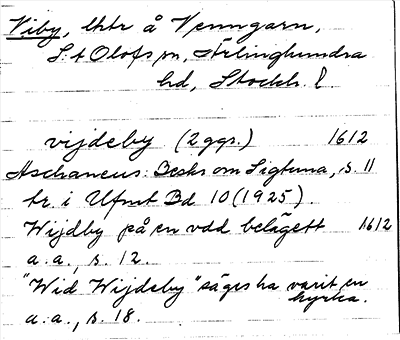 Viby, lhtr å Venngarn,
S:t Olofs sn, Ärlinghundra
hd, Stockh. l.
vijdeby (2 ggr.) 1612
Aschaneus: Beskr om Sigtuna, s. 11
tr. i Ufmt Bd 10 (1925).
Wijdby på en udd belägett 1612
a.a., s. 12.
"Wid Wijdeby" säges ha varit en
kyrka.
a.a., s. 18.